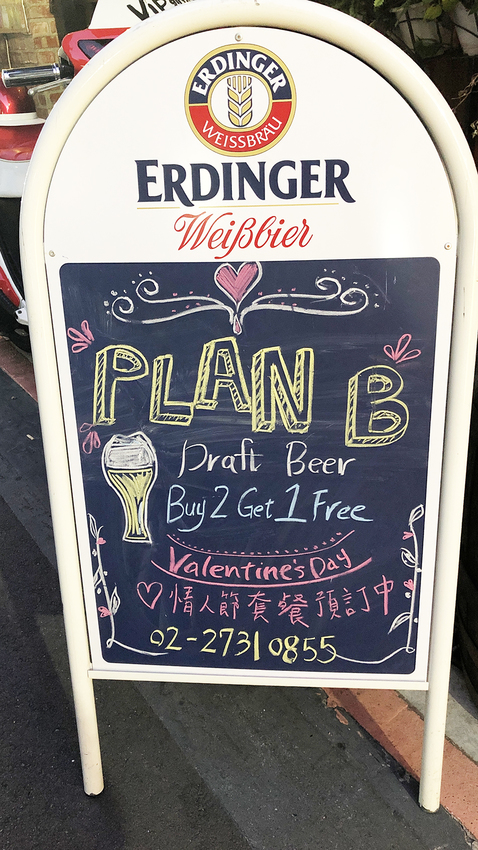 VIP
ERDINGER
WEISSBRÄU
ERDINGER
Weißbier
PLAN B
Draft Beer
Buy 2 Get 1 Free
Valentine's Day
情人節套餐預訂中
02-2731 0855